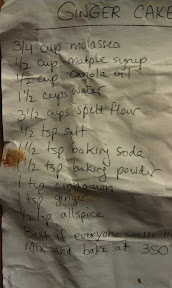 GINGER CAKE
3/4 cup molasses
1/2 cup maple syrup
1/2 cup canola oil
1 1/2 cups water
3 1/2 cups spelt flour
1/2 tsp salt
1 1/2 tsp baking soda
1 1/2 tsp baking powder
1 tsp cinnamon
1 tsp ginger
1/4 tsp allspice
Best if everyone
Mix and bake at 350